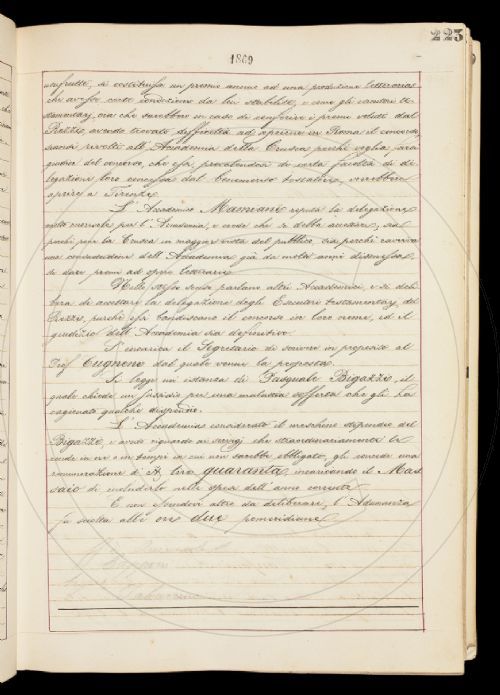 225
1869
usufrutti, si costituisse un premio annuo ad una produzione letteraria
che avesse certe condizioni da lui stabilite, e come gli esecutori te-
stamentarj, ora che sarebbero in caso di conferire i premi voluti dal
Pezzo, avendo trovato difficoltà ad aprirne in Roma il concorso,
siansi rivolti all' Accademia della Crusca perchè voglia farsi
giudice del concorso, che essi, prevalendosi di certa facoltà di de-
legazione loro concessa dal benemerito testatore, verrebbero
aprire a Firenze.
L' Accademico Mamiani reputa la delegazione
molto onorevole per l' Accademia, e crede che si debba accettare, sia
perchè pone la Crusca in maggior vista del pubblico, sia perchè ravviva
una consuetudine dell' Accademia già da molti anni dismessa,
di dare premi ad opere letterarie.
Nello stesso senso parlano altri Accademici, e si deli-
bera di accettare la delegazione degli Esecutori testamentarj del
perchè essi bandiscano il concorso in loro nome, ed il
giudizio dell' Accademia sia definitivo.
S' incarica il Segretario di scrivere in proposito al
Prof. Cugnoni dal quale venne la proposta.
Si legge un' istanza di Pasquale Bigazzi, il
quale chiede un sussidio per una malattia sofferta che gli ha
cagionato qualche dispendio.
L' Accademia considerato il meschino stipendio del
Bigazzi, e avuto riguardo ai servigj che straordinariamente le
rende in ore e in tempi in cui non sarebbe obbligato, gli concede una
remunerazione d' It. Lire quaranta, incaricando il Mas-
saio di includerlo nelle spese dell' anno corrente.
E non essendovi altro da deliberare, l' Adunanza
fu sciolta alle ore due pomeridiane.